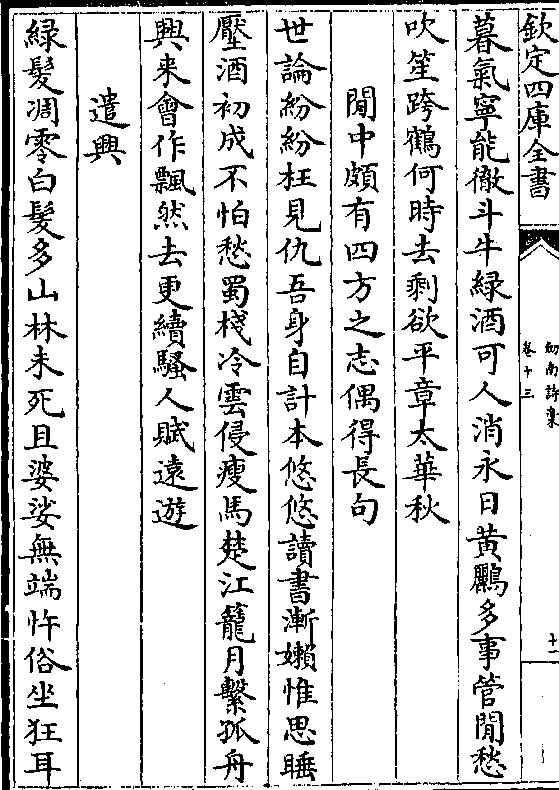 欽定四庫全書
劍南詩藁
卷十三
十一
暮氣寧能徹斗牛緑酒可人消永日黄鸝多事管閒愁
吹笙跨鶴何時去剩欲平章太華秋
閒中頗有四方之志偶得長句
世論紛紛枉見仇吾身自計本悠悠讀書漸嬾惟思睡
壓酒初成不怕愁蜀棧冷雲侵瘦馬楚江籠月繫孤舟
興来會作飄然去更續騷人賦逺遊
遣興
緑髮凋零白髮多山林未死且婆娑無端忤俗坐狂耳